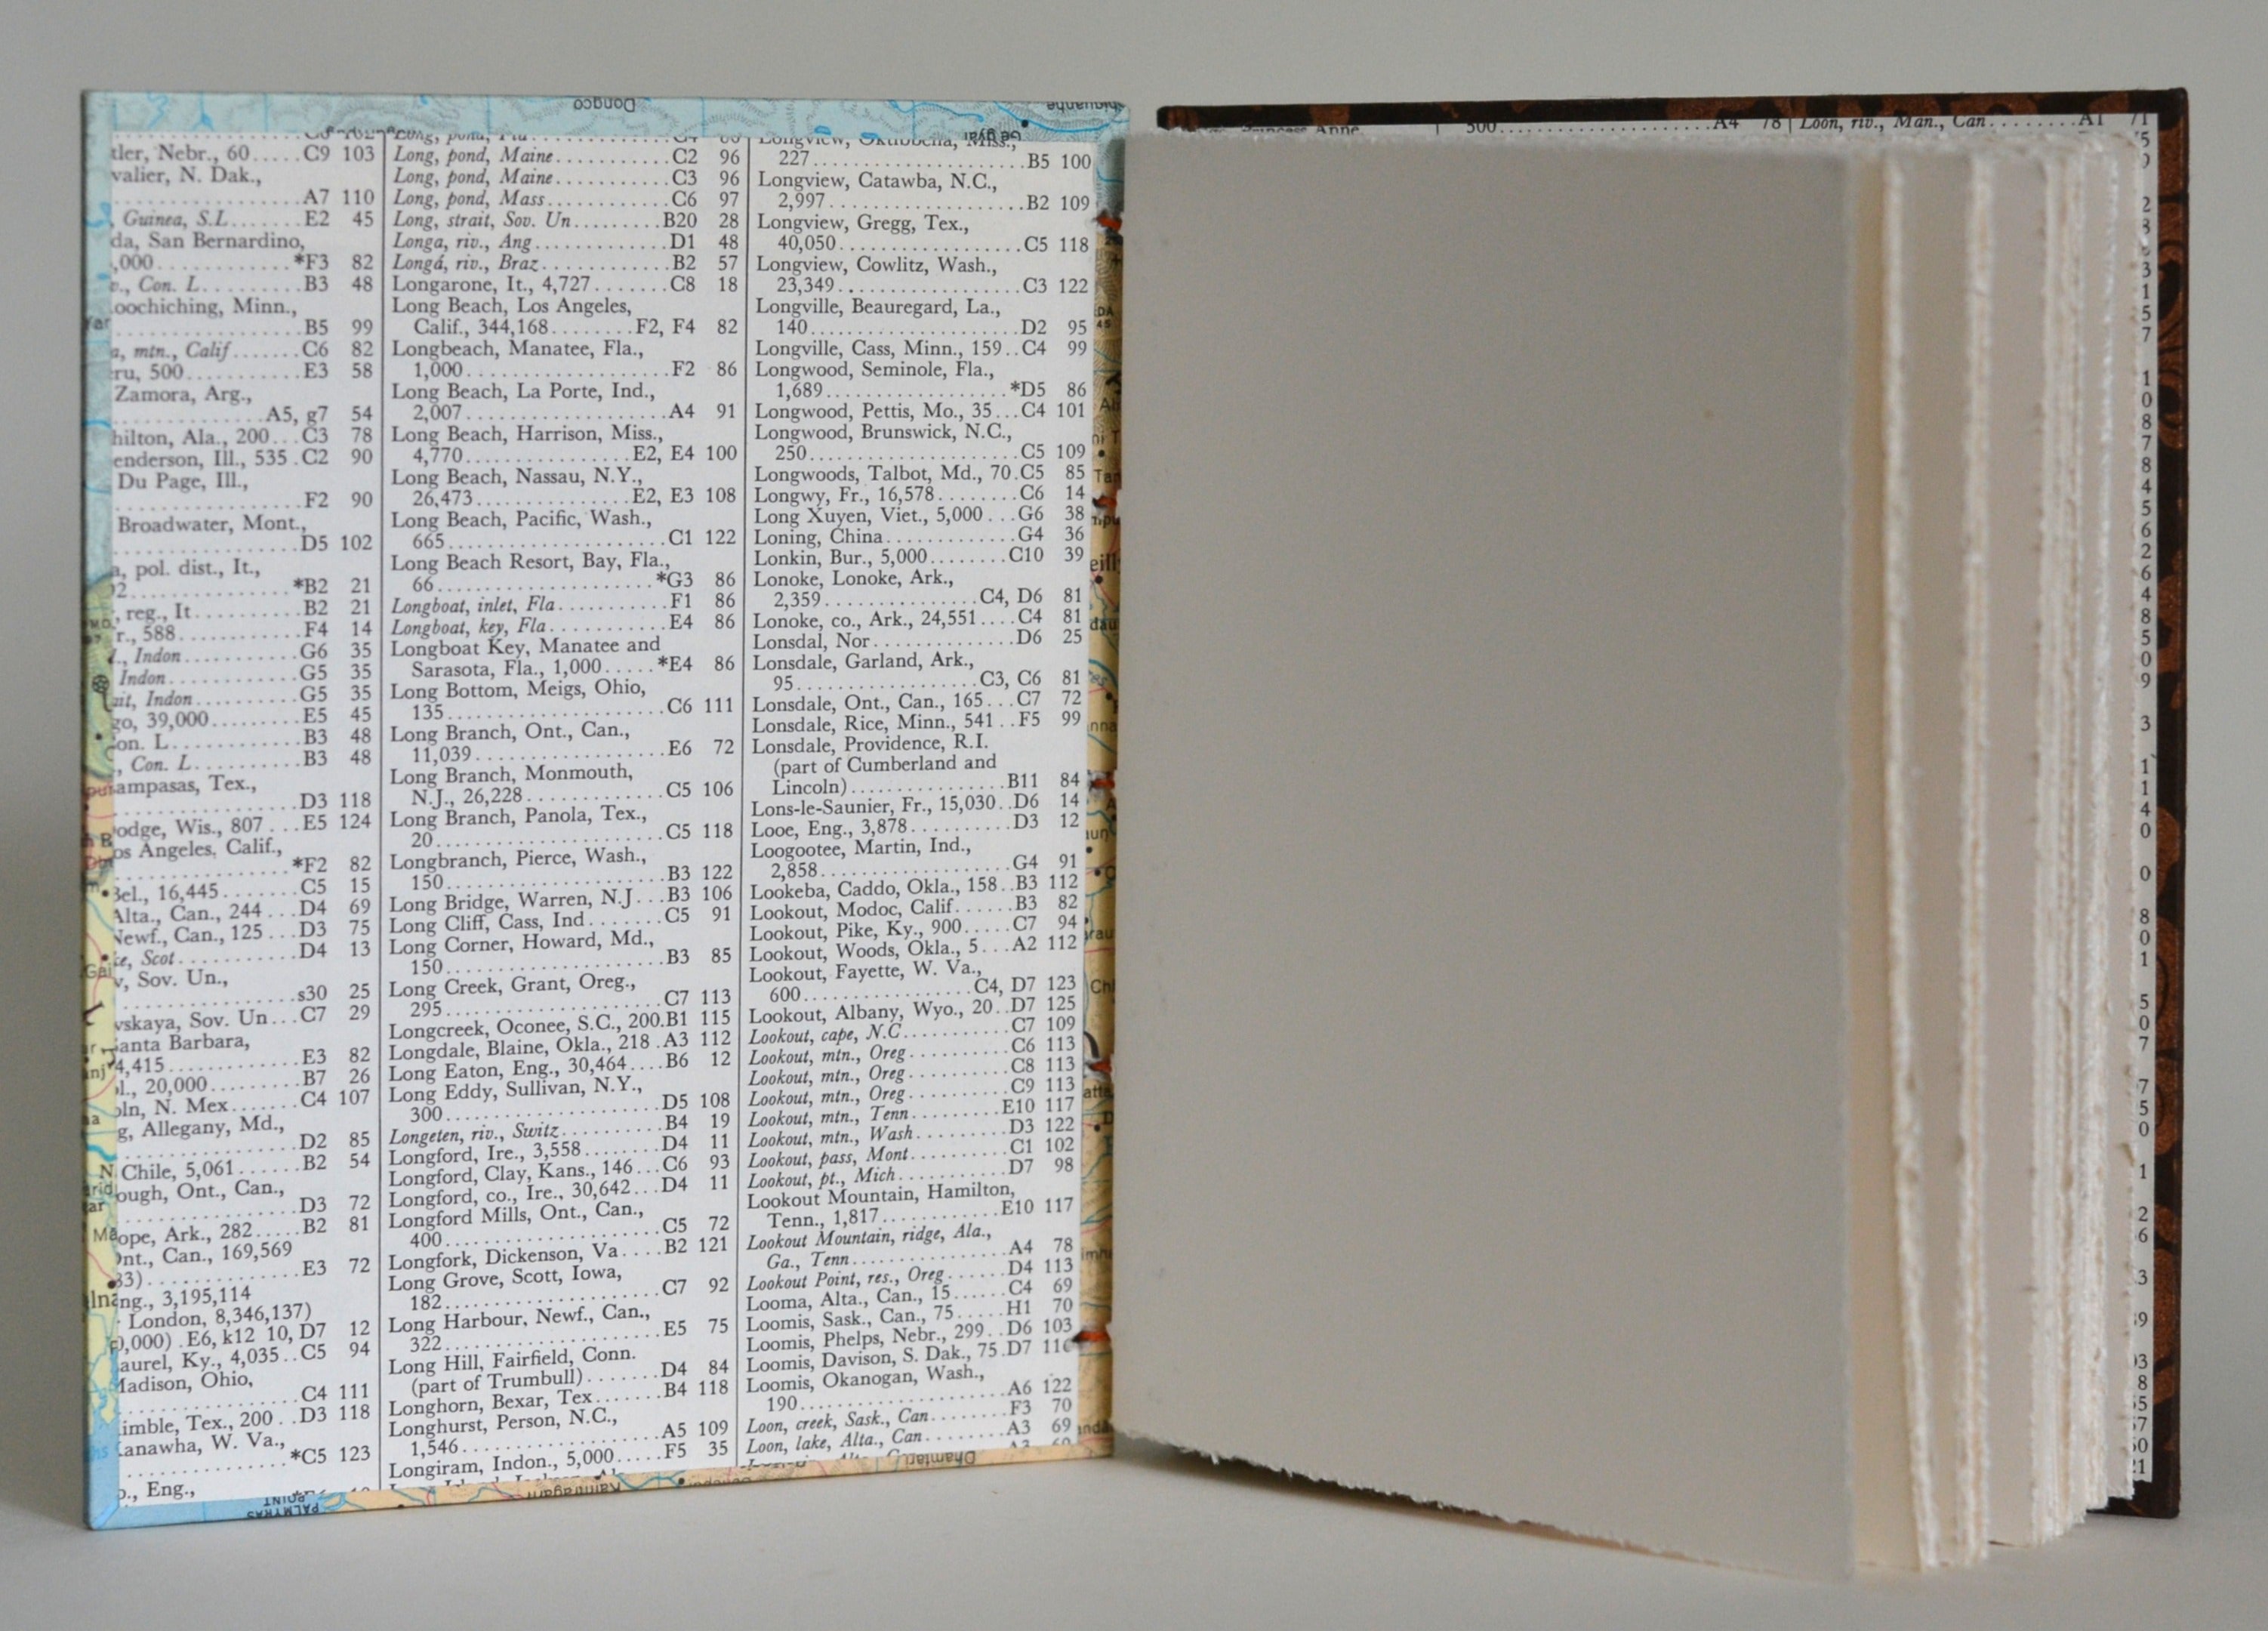 Dongco
Ge gyai
tler, Nebr., 60.....C9 103
valier, N. Dak.,
A7 110
, Guinea, S.L.......E2 45
da, San Bernardino,
,000............*F3 82
v., Con. L.........B3 48
oochiching, Minn.,
B5 99
a, mtn., Calif.......C6 82
eru, 500...........E3 58
Zamora, Arg.,
A5, g7 54
hilton, Ala., 200...C3 78
enderson, Ill., 535.C2 90
Du Page, Ill.,
F2 90
Broadwater, Mont.,
D5 102
a, pol. dist., It.,
*B2 21
, reg., It...........B2 21
r., 588.............F4 14
., Indon...........G6 35
Indon.............G5 35
ait, Indon..........G5 35
go, 39,000.........E5 45
Con. L.............B3 48
, Con. L..........B3 48
ampasas, Tex.,
D3 118
odge, Wis., 807....E5 124
os Angeles, Calif.,
*F2 82
Bel., 16,445........C5 15
Alta., Can., 244....D4 69
Newf., Can., 125...D3 75
ke, Scot...........D4 13
v, Sov. Un.,
s30 25
vskaya, Sov. Un...C7 29
anta Barbara,
4,415.............E3 82
l., 20,000.........B7 26
oln, N. Mex.......C4 107
g, Allegany, Md.,
D2 85
N Chile, 5,061......B2 54
ough, Ont., Can.,
D3 72
ope, Ark., 282.....B2 81
Ont., Can., 169,569
33)..............E3 72
ng., 3,195,114
London, 8,346,137)
0,000) .E6, k12 10, D7 12
aurel, Ky., 4,035..C5 94
Madison, Ohio,
C4 111
imble, Tex., 200..D3 118
Kanawha, W. Va.,
*C5 123
o., Eng.,
Long, pond, Maine...........C2 96
Long, pond, Maine...........C3 96
Long, pond, Mass...........C6 97
Long, strait, Sov. Un.........B20 28
Longa, riv., Ang.............D1 48
Longá, riv., Braz............B2 57
Longarone, It., 4,727.......C8 18
Long Beach, Los Angeles,
Calif., 344,168........F2, F4 82
Longbeach, Manatee, Fla.,
1,000...................F2 86
Long Beach, La Porte, Ind.,
2,007...................A4 91
Long Beach, Harrison, Miss.,
4,770...............E2, E4 100
Long Beach, Nassau, N.Y.,
26,473..............E2, E3 108
Long Beach, Pacific, Wash.,
665.....................C1 122
Long Beach Resort, Bay, Fla.,
66....................*G3 86
Longboat, inlet, Fla..........F1 86
Longboat, key, Fla...........E4 86
Longboat Key, Manatee and
Sarasota, Fla., 1,000.....*E4 86
Long Bottom, Meigs, Ohio,
135.....................C6 111
Long Branch, Ont., Can.,
11,039..................E6 72
Long Branch, Monmouth,
N.J., 26,228............C5 106
Long Branch, Panola, Tex.,
20......................C5 118
Longbranch, Pierce, Wash.,
150.....................B3 122
Long Bridge, Warren, N.J...B3 106
Long Cliff, Cass, Ind.......C5 91
Long Corner, Howard, Md.,
150.....................B3 85
Long Creek, Grant, Oreg.,
295.....................C7 113
Longcreek, Oconee, S.C., 200.B1 115
Longdale, Blaine, Okla., 218.A3 112
Long Eaton, Eng., 30,464....B6 12
Long Eddy, Sullivan, N.Y.,
300.....................D5 108
Longeten, riv., Switz..........B4 19
Longford, Ire., 3,558........D4 11
Longford, Clay, Kans., 146...C6 93
Longford, co., Ire., 30,642...D4 11
Longford Mills, Ont., Can.,
400.....................C5 72
Longfork, Dickenson, Va....B2 121
Long Grove, Scott, Iowa,
182.....................C7 92
Long Harbour, Newf., Can.,
322.....................E5 75
Long Hill, Fairfield, Conn.
(part of Trumbull).......D4 84
Longhorn, Bexar, Tex.......B4 118
Longhurst, Person, N.C.,
1,546...................A5 109
Longiram, Indon., 5,000.....F5 35
Longview, Oktibbeha, Miss.,
227....................B5 100
Longview, Catawba, N.C.,
2,997..................B2 109
Longview, Gregg, Tex.,
40,050.................C5 118
Longview, Cowlitz, Wash.,
23,349.................C3 122
Longville, Beauregard, La.,
140....................D2 95
Longville, Cass, Minn., 159..C4 99
Longwood, Seminole, Fla.,
1,689.................*D5 86
Longwood, Pettis, Mo., 35...C4 101
Longwood, Brunswick, N.C.,
250....................C5 109
Longwoods, Talbot, Md., 70.C5 85
Longwy, Fr., 16,578........C6 14
Long Xuyen, Viet., 5,000...G6 38
Loning, China.............G4 36
Lonkin, Bur., 5,000........C10 39
Lonoke, Lonoke, Ark.,
2,359...............C4, D6 81
Lonoke, co., Ark., 24,551....C4 81
Lonsdal, Nor..............D6 25
Lonsdale, Garland, Ark.,
95..................C3, C6 81
Lonsdale, Ont., Can., 165...C7 72
Lonsdale, Rice, Minn., 541..F5 99
Lonsdale, Providence, R.I.
(part of Cumberland and
Lincoln)...............B11 84
Lons-le-Saunier, Fr., 15,030..D6 14
Looe, Eng., 3,878..........D3 12
Loogootee, Martin, Ind.,
2,858..................G4 91
Lookeba, Caddo, Okla., 158..B3 112
Lookout, Modoc, Calif......B3 82
Lookout, Pike, Ky., 900.....C7 94
Lookout, Woods, Okla., 5...A2 112
Lookout, Fayette, W. Va.,
600.................C4, D7 123
Lookout, Albany, Wyo., 20..D7 125
Lookout, cape, N.C..........C7 109
Lookout, mtn., Oreg..........C6 113
Lookout, mtn., Oreg..........C8 113
Lookout, mtn., Oreg..........C9 113
Lookout, mtn., Tenn.........E10 117
Lookout, mtn., Wash.........D3 122
Lookout, pass, Mont..........C1 102
Lookout, pt., Mich...........D7 98
Lookout Mountain, Hamilton,
Tenn., 1,817...........E10 117
Lookout Mountain, ridge, Ala.,
Ga., Tenn...............A4 78
Lookout Point, res., Oreg......D4 113
Looma, Alta., Can., 15......C4 69
Loomis, Sask., Can., 75.....H1 70
Loomis, Phelps, Nebr., 299..D6 103
Loomis, Davison, S. Dak., 75.D7 110
Loomis, Okanogan, Wash.,
190....................A6 122
Loon, creek, Sask., Can........F3 70
Loon, lake, Alta., Can........A3 69
PALMYRAS
POINT
Dhamtari
Princess Anne
500....................A4 78
Loon, riv., Man., Can........A1 71